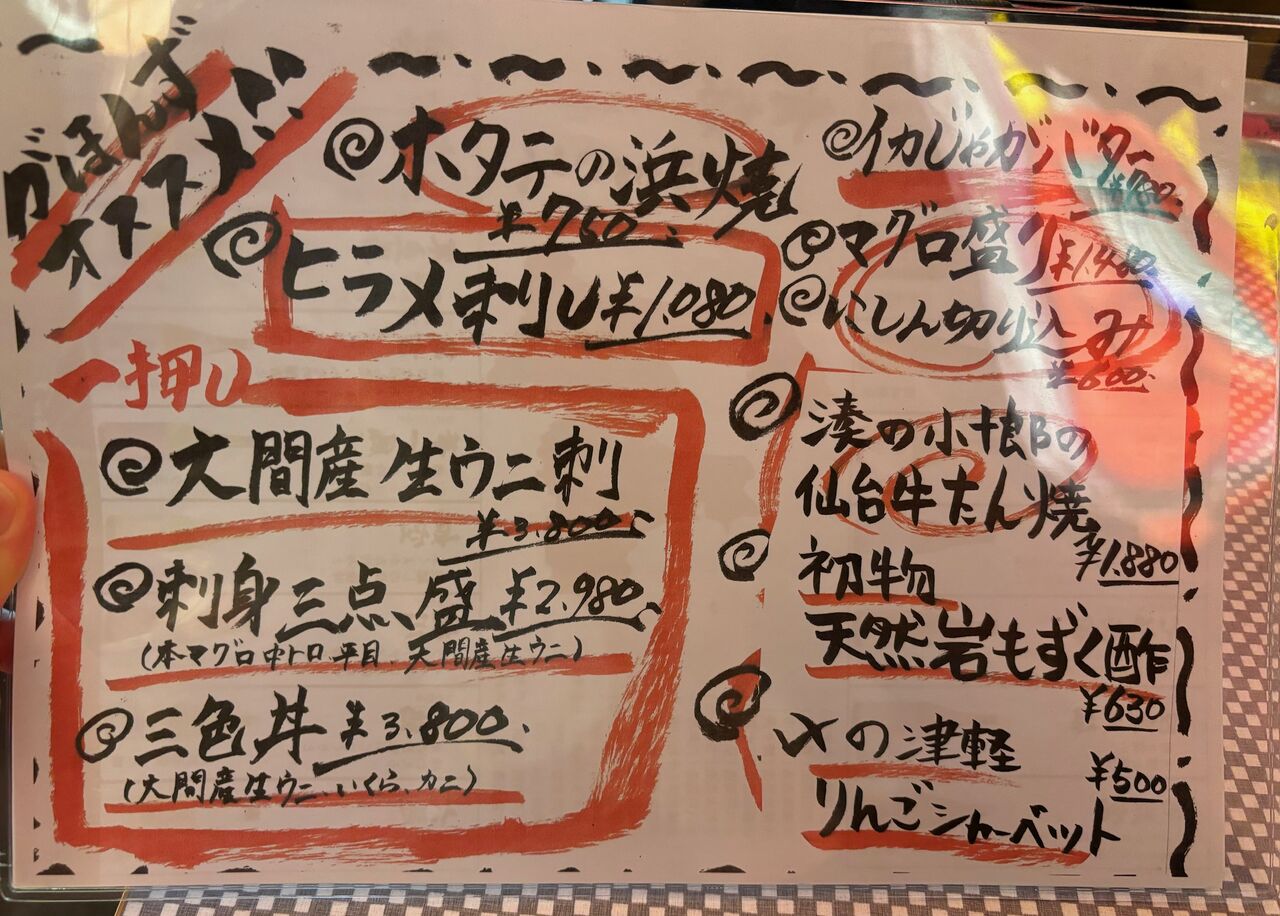 がほんず
オススメ!!
ホタテの浜焼
¥750.
ヒラメ刺し¥1,080.
一押し
大間産生ウニ刺
¥3,800.
刺身三点盛¥2,980.
(本マグロ中トロ、平目、大間産生ウニ)
三色丼¥3,800.
(大間産生ウニ、いくら、カニ)
イカじゃがバター
マグロ盛り¥1,480
にしん切り込み
¥600.
湊の小十郎の
仙台牛たん焼
¥1,880
初物
天然岩もずく酢
¥630
〆の津軽
¥500
りんごシャーベット